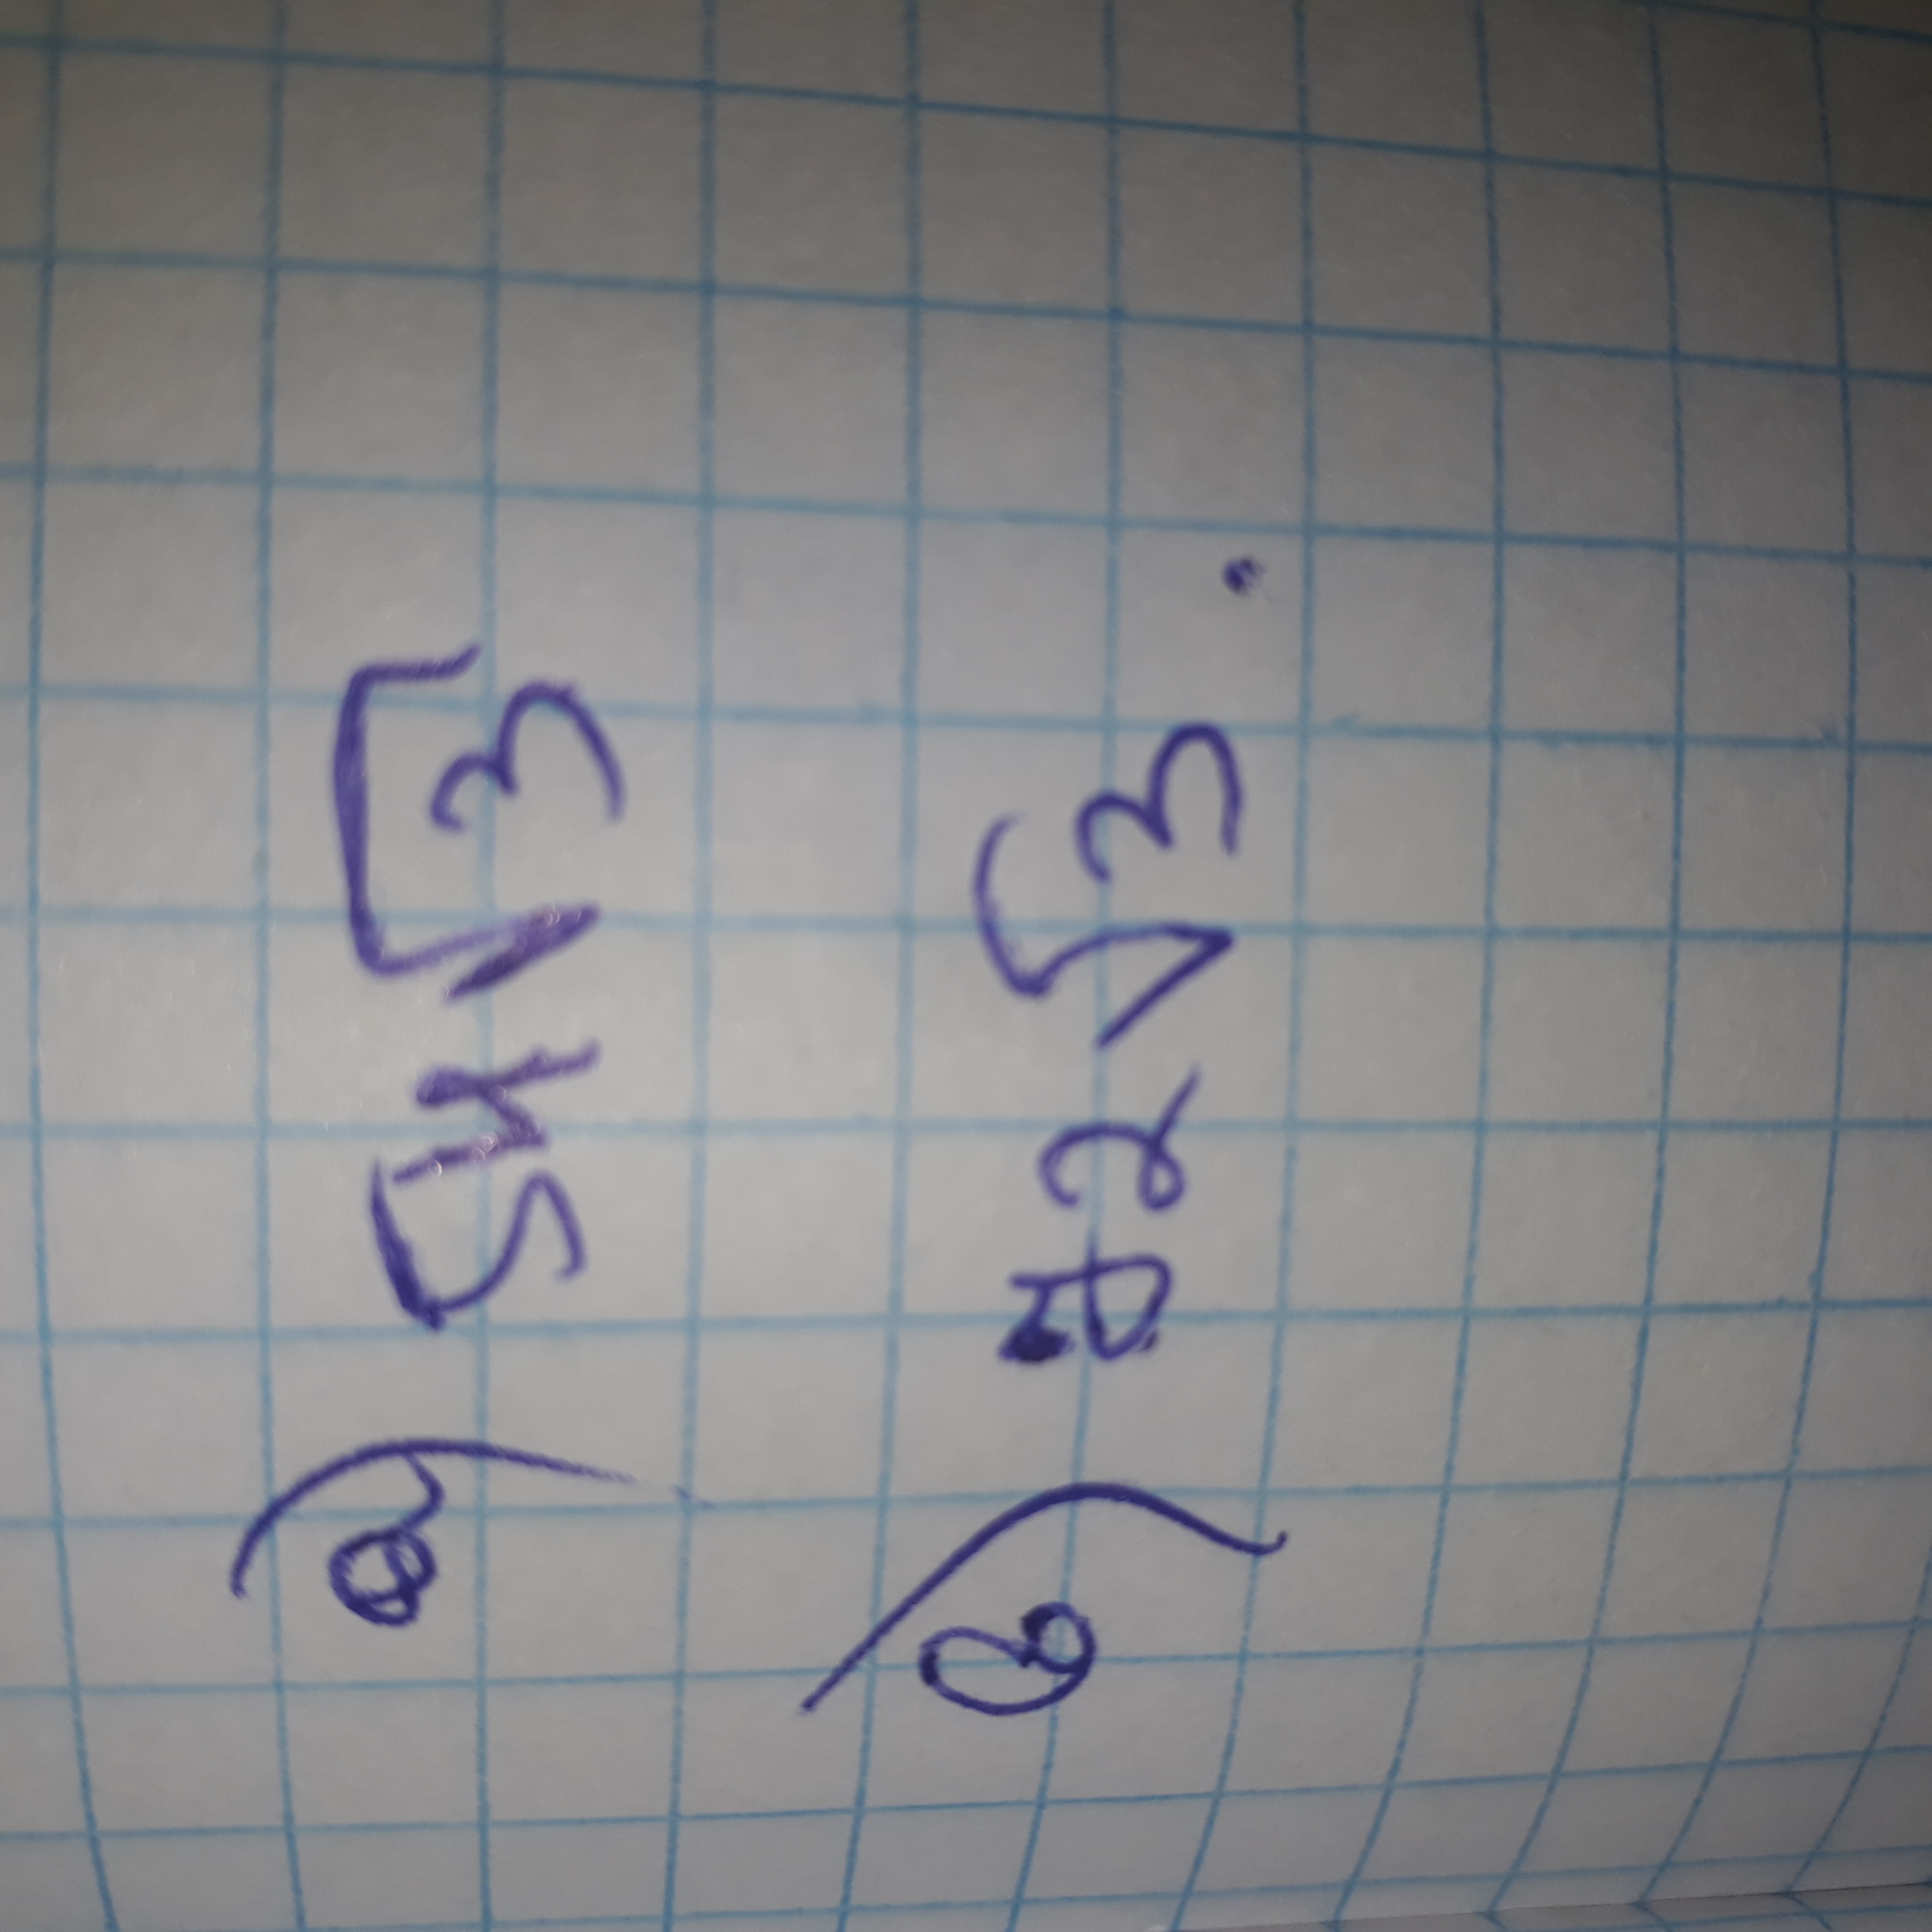 a) 54√3
b) 72√3.